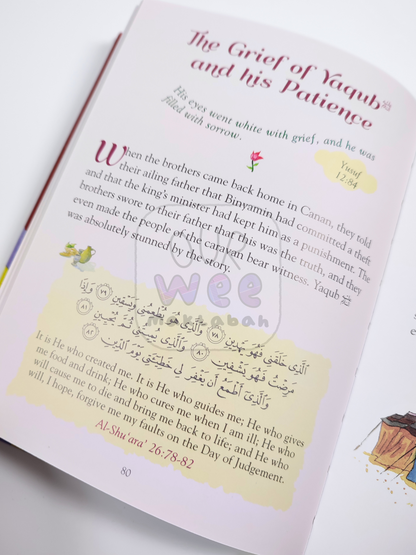 The Grief of Yaqub
and his Patience
His eyes went white with grief, and he was
filled with sorrow.
Yusuf
12:84
When the brothers came back home in Canan, they told
their ailing father that Binyamin had committed a theft
and that the king's minister had kept him as a punishment. The
brothers swore to their father that this was the truth, and they
even made the people of the caravan bear witness. Yaqub
was absolutely stunned by the story.
OUR
wee
maktabah
ٱلَّذِى خَلَقَنِى فَهُوَ يَهْدِينِ ٧٨ وَٱلَّذِى هُوَ يُطْعِمُنِى وَيَسْقِينِ ٧٩ وَإِذَا
مَرِضْتُ فَهُوَ يَشْفِينِ ٨٠ وَٱلَّذِى يُمِيتُنِى ثُمَّ يُحْيِينِ ٨١
وَٱلَّذِىٓ أَطْمَعُ أَن يَغْفِرَ لِى خَطِيٓـَٔتِى يَوْمَ ٱلدِّينِ ٨٢
It is He who created me. It is He who guides me; He who gives
me food and drink; He who cures me when I am ill; He who
will cause me to die and bring me back to life; and He who
will, I hope, forgive me my faults on the Day of Judgement.
Al-Shu'ara' 26:78-82
80